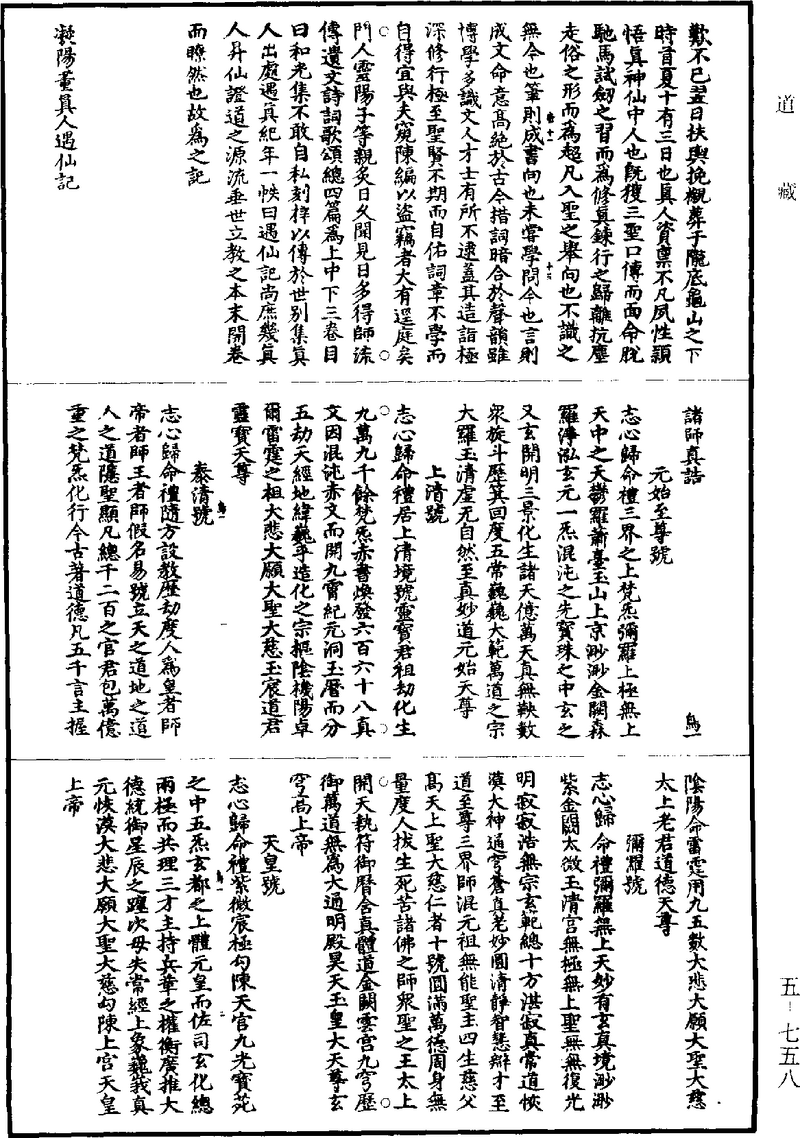 道藏
歎不已翌日扶輿挽櫬葬于隴底龜山之下
時首夏十有三日也真人資稟不凡夙性穎
悟真神仙中人也既獲三聖口傳而面命脫
馳馬試劒之習而為修真鍊行之歸離抗塵
走俗之形而為超凡入聖之舉向也不識之
無今也筆則成書向也未嘗學問今也言則
成文命意高絶於古今措詞暗合於聲韻雖
博學多識文人才士有所不逮蓋其造詣極
深修行極至聖賢不期而自佑詞章不學而
自得宜與夫窺陳編以盜竊者大有逕庭矣
門人靈陽子等親炙日久聞見日多得師流
傳遺文詩詞歌頌總四篇為上中下三卷目
曰和光集不敢自私刻梓以傳於世別集真
人出處遇真紀年一帙曰遇仙記尚庶幾真
人昇仙證道之源流垂世立教之本末開卷
而瞭然也故為之記
凝陽董真人遇仙記
諸師真誥
鳥一
元始至尊號
志心歸命禮三界之上梵炁彌羅上極無上
天中之天鬱羅蕭臺玉山上京渺渺金闕森
羅淨泓玄元一炁混沌之先寳珠之中玄之
又玄開明三景化生諸天億萬天真無鞅數
衆旋斗歷箕回度五常巍巍大範萬道之宗
大羅玉清虛无自然至真妙道元始天尊
上清號
志心歸命禮居上清境號靈寳君祖劫化生
九萬九千餘梵炁赤書煥發六百六十八真
文因混沌赤文而開九霄紀元洞玉曆而分
五劫天經地緯巍乎造化之宗樞陰機陽卓
爾雷霆之祖大悲大願大聖大慈玉宸道君
靈寳天尊
泰清號
志心歸命禮隨方設教歷劫度人為皇者師
帝者師王者師假名易號立天之道地之道
人之道隱聖顯凡總千二百之官君包萬億
重之梵炁化行今古著道德凡五千言主握
陰陽命雷霆用九五數大悲大願大聖大慈
太上老君道德天尊
彌羅號
志心歸命禮彌羅無上天妙有玄真境渺渺
紫金闕太微玉清宮無極無上聖無無復光
明寂寂浩無宗玄範總十方湛寂真常道恢
漠大神通穹蒼真老妙圓清靜智慧辯才至
道至尊三界師混元祖無能聖主四生慈父
高天上聖大慈仁者十號圓滿萬德周身無
量度人拔生死苦諸佛之師衆聖之王太上
開天執符御曆含真體道金闕雲宮九穹歷
御萬道無為大通明殿昊天玉皇大天尊玄
穹高上帝
天皇號
志心歸命禮紫微宸極勾陳天宮九光寳苑
之中五炁玄都之上體元皇而佐司玄化總
兩極而共理三才主持兵革之權衡廣推大
德統御星辰之躔次毋失常經上象巍峩真
元恢漠大悲大願大聖大慈勾陳上宮天皇
上帝
五-七五八